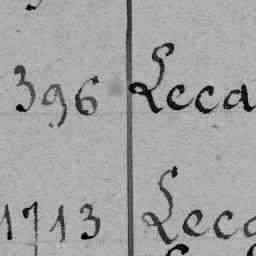 396 Leca
1713 Lec